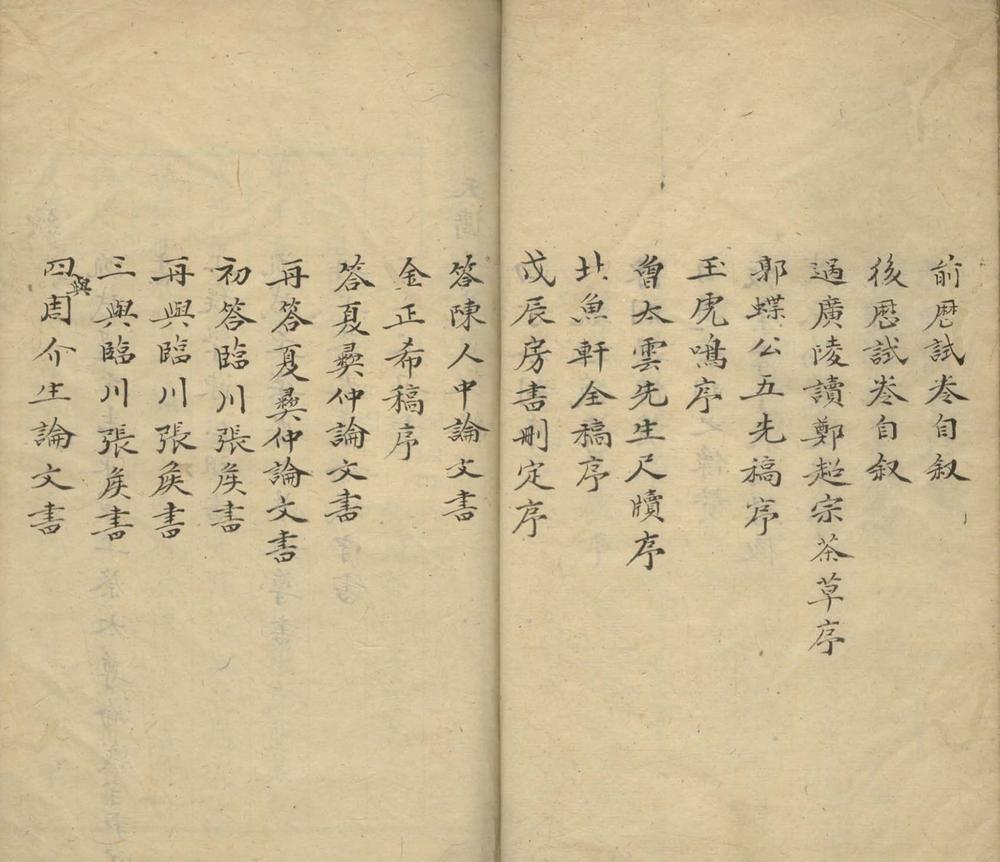 前歷試卷自叙
後歷試卷自叙
過廣陵讀鄭超宗茶草序
郭蝶公五先稿序
玉虎鳴序
曾太雲先生尺牘序
北魚軒全稿序
戊辰房書刪定序
答陳人中論文書
金正希稿序
答夏彝仲論文書
再答夏彝仲論文書
初答臨川張侯書
再與臨川張侯書
三與臨川張侯書
四與周介生論文書